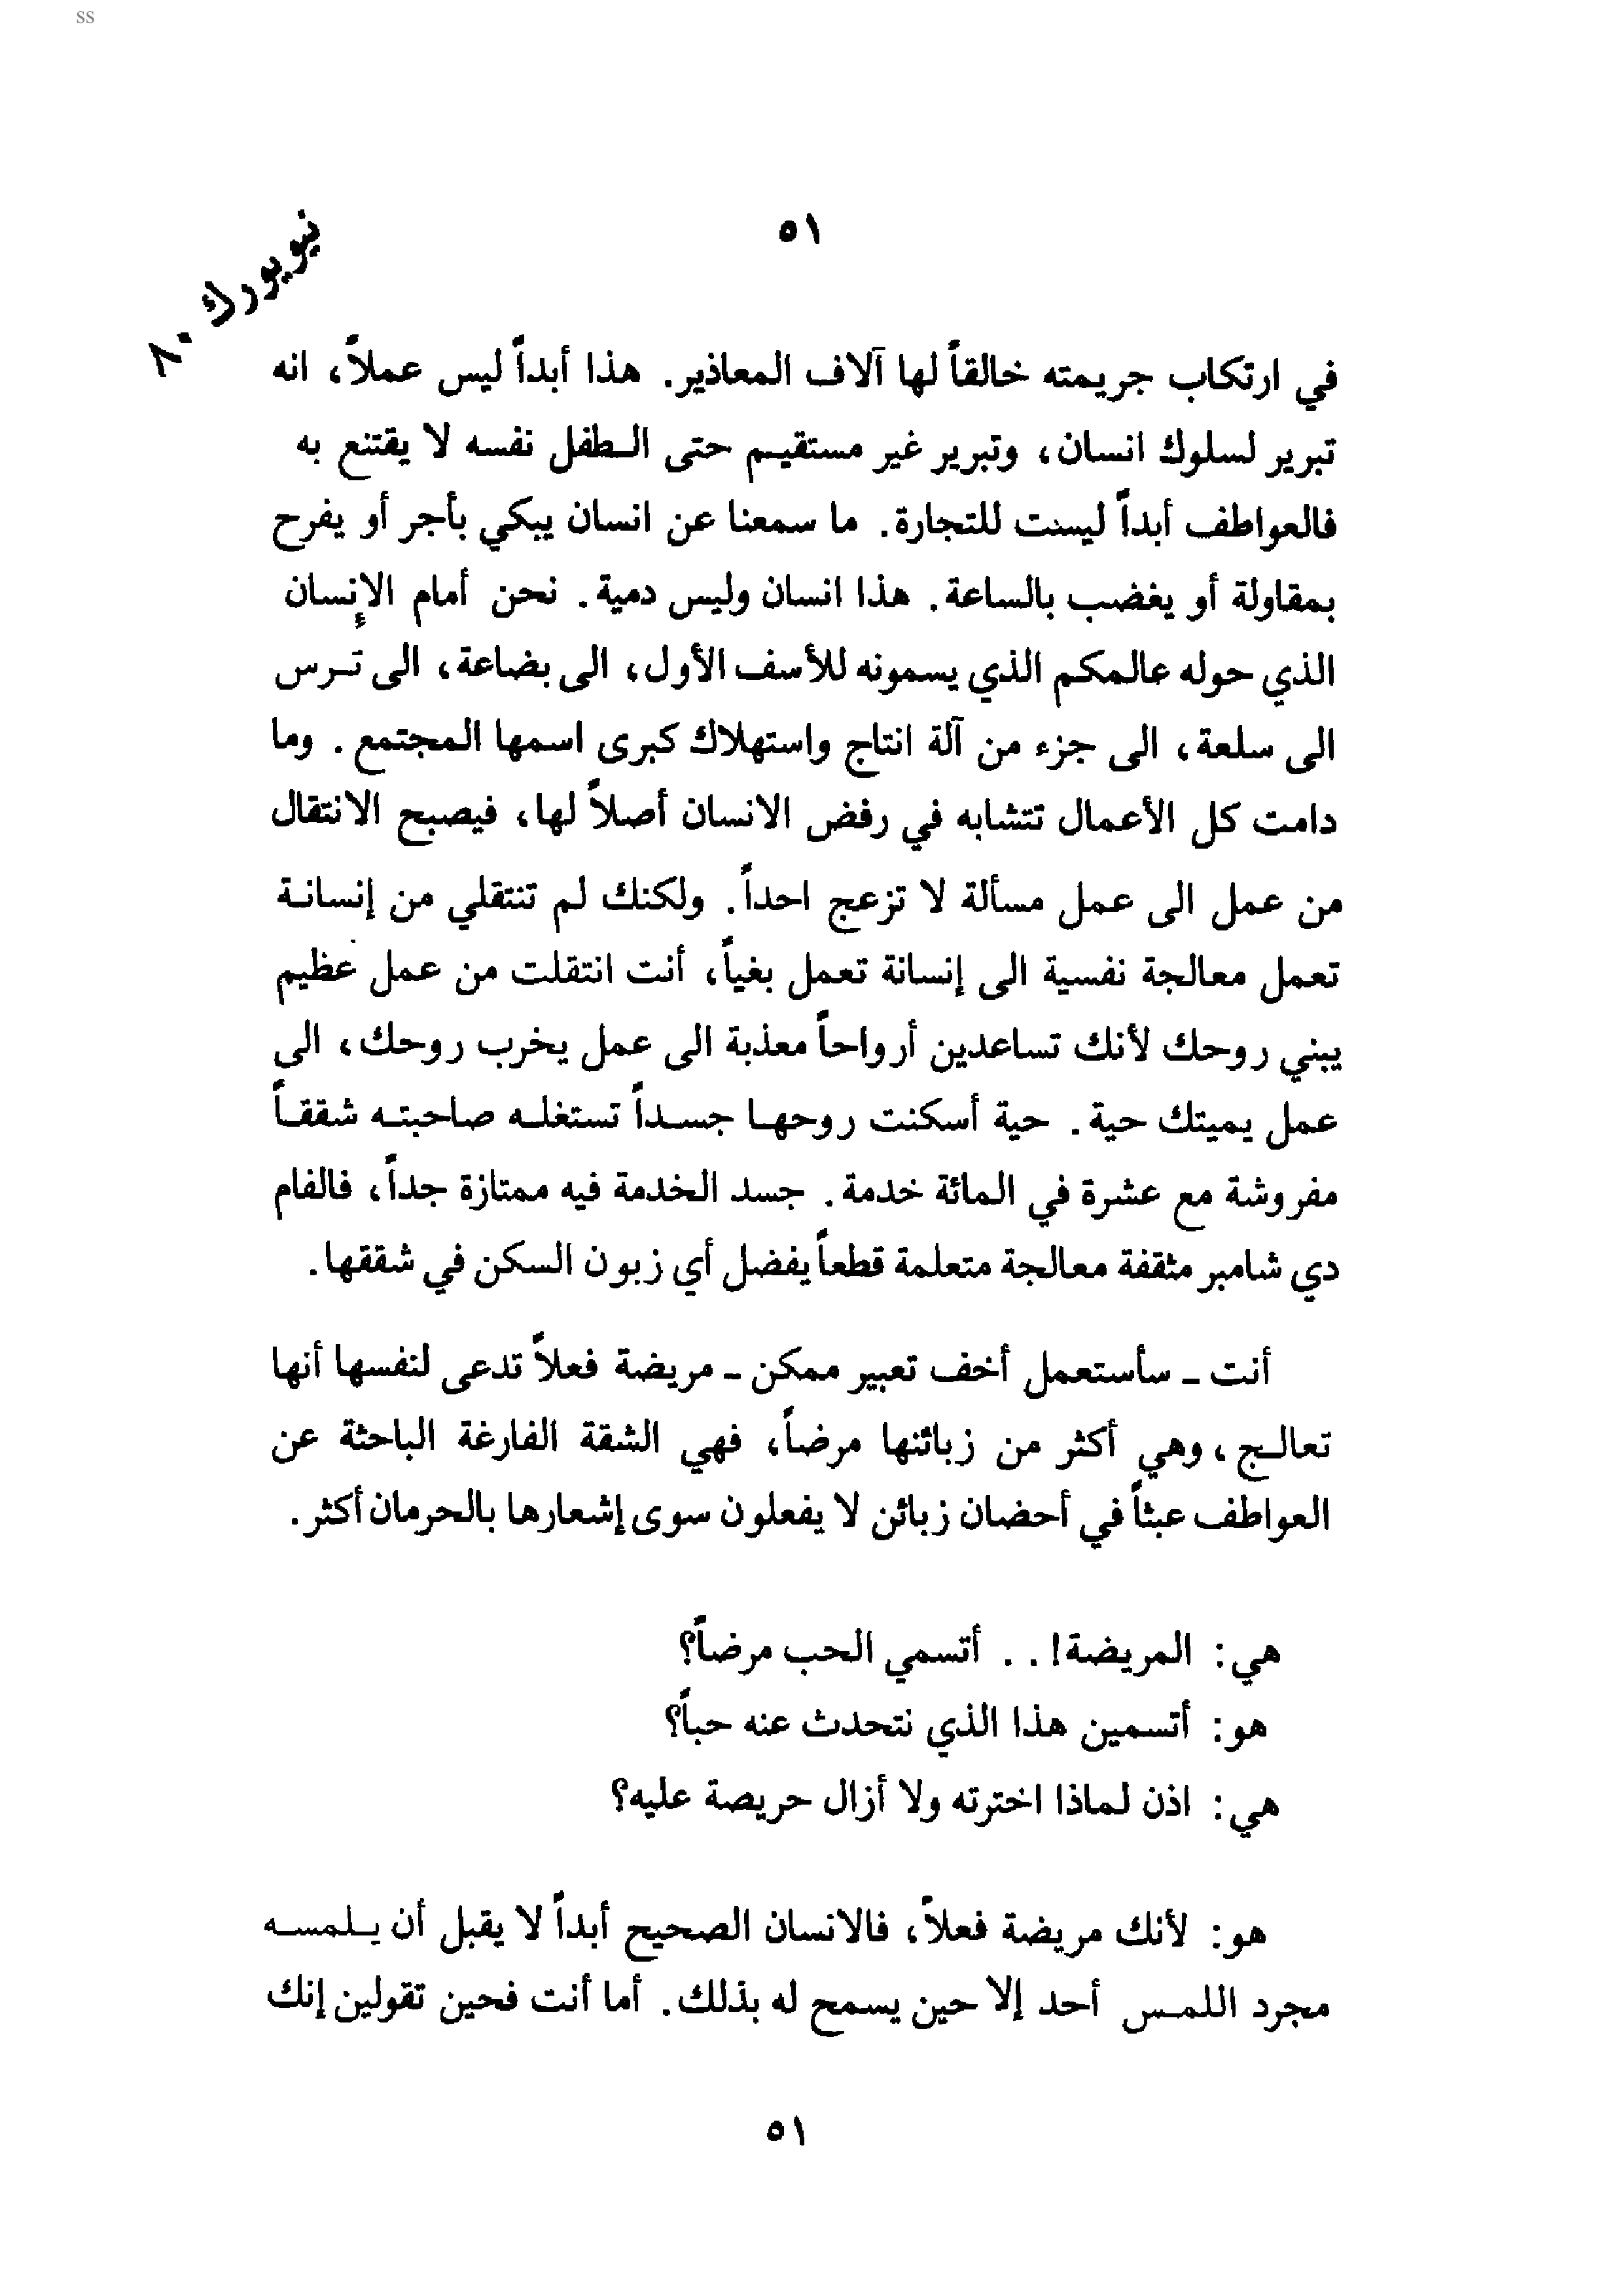 ss
٥١
نيويورك ٨٠
في ارتكاب جريمته خالقاً لها آلاف المعاذير. هذا أبداً ليس عملاً، انه
تبرير لسلوك انسان، وتبرير غير مستقيم حتى الطفل نفسه لا يقتنع به
فالعواطف أبداً ليست للتجارة. ما سمعنا عن انسان يبكي بأجر أو يفرح
بمقاولة أو يغضب بالساعة. هذا انسان وليس دمية. نحن أمام الإنسان
الذي حوله عالمكم الذي يسمونه للأسف الأول، الى بضاعة، الى ترس
الى سلعة، الى جزء من آلة انتاج واستهلاك كبرى اسمها المجتمع. وما
دامت كل الأعمال تتشابه في رفض الانسان أصلاً لها، فيصبح الانتقال
من عمل الى عمل مسألة لا تزعج احداً. ولكنك لم تنتقلي من إنسانة
تعمل معالجة نفسية الى إنسانة تعمل بغياً، أنت انتقلت من عمل عظيم
يبني روحك لأنك تساعدين أرواحاً معذبة الى عمل يخرب روحك، الى
عمل يميتك حية. حية أسكنت روحها جسداً تستغله صاحبته شققاً
مفروشة مع عشرة في المائة خدمة. جسد الخدمة فيه ممتازة جداً، فالفام
دي شامبر مثقفة معالجة متعلمة قطعاً يفضل أي زبون السكن في شققها.
أنت ـ سأستعمل أخف تعبير ممكن ـ مريضة فعلاً تدعى لنفسها أنها
تعالج، وهي أكثر من زبائنها مرضاً، فهي الشقة الفارغة الباحثة عن
العواطف عبثاً في أحضان زبائن لا يفعلون سوى إشعارها بالحرمان أكثر.
هي: المريضة!.. أتسمي الحب مرضاً؟
هو: أتسمين هذا الذي نتحدث عنه حباً؟
هي: اذن لماذا اخترته ولا أزال حريصة عليه؟
هو: لأنك مريضة فعلاً، فالانسان الصحيح أبداً لا يقبل أن يلمسه
مجرد اللمس أحد إلا حين يسمح له بذلك. أما أنت فحين تقولين إنك
٥١